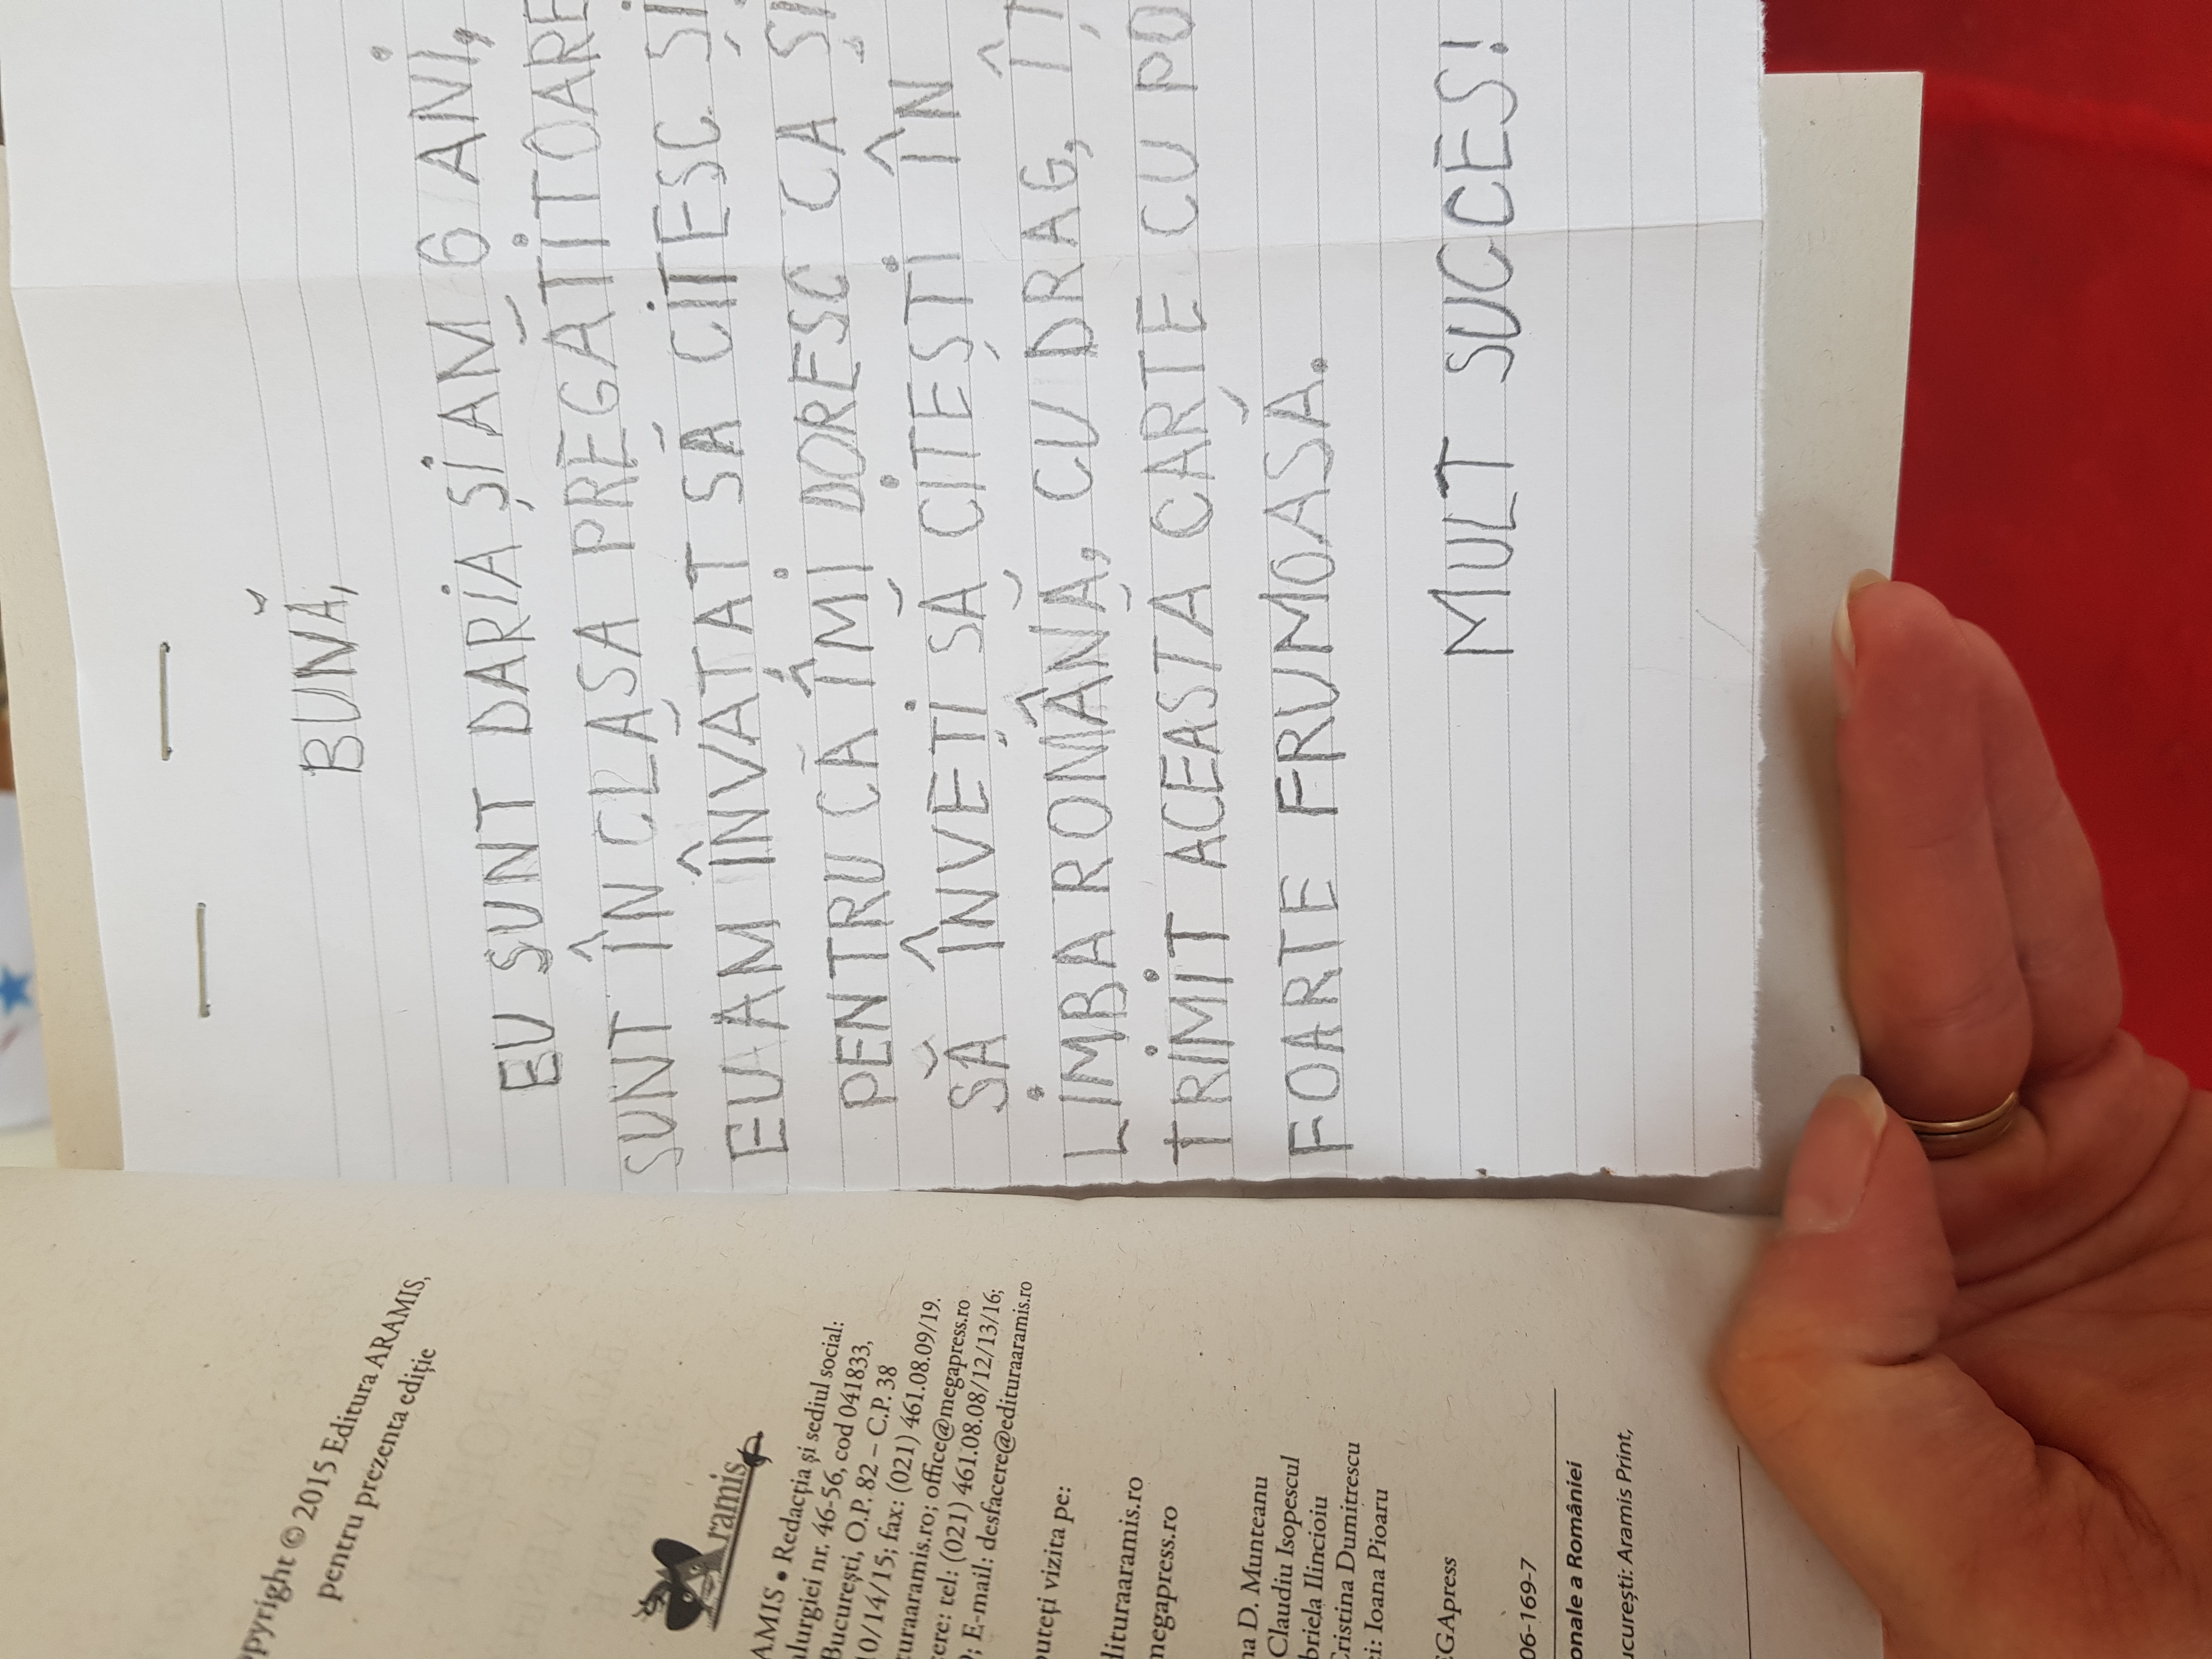 BUNĂ,
EU SUNT DARIA ȘI AM 6 ANI,
SUNT ÎN CLASA PREGĂTITOARE
EU AM ÎNVĂȚAT SĂ CITESC ȘI
PENTRU CĂ ÎMI DORESC CA ȘI
SĂ ÎNVEȚI SĂ CITEȘTI ÎN
LIMBA ROMÂNĂ, CU DRAG, ÎȚ
TRIMIT ACEASTĂ CARTE CU PO
FOARTE FRUMOASĂ.
MULT SUCCES!
opyright © 2015 Editura ARAMIS,
pentru prezenta ediție
Aramis
AMIS • Redacția și sediul social:
alurgiei nr. 46-56, cod 041833,
București, O.P. 82 – C.P. 38
10/14/15; fax: (021) 461.08.09/19.
turaaramis.ro; office@megapress.ro
cere: tel: (021) 461.08.08/12/13/16;
; E-mail: desfacere@edituraaramis.ro
outeți vizita pe:
dituraaramis.ro
megapress.ro
na D. Munteanu
Claudiu Isopescul
briela Ilincioiu
Cristina Dumitrescu
ei: Ioana Pioaru
EGApress
06-169-7
onale a României
ucurești: Aramis Print,